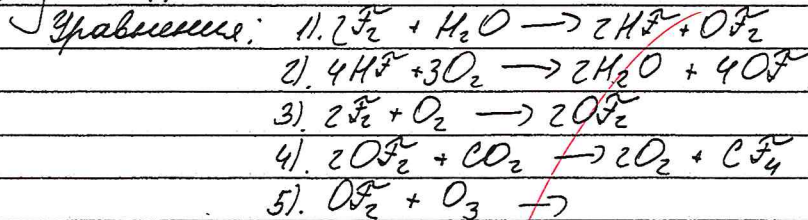 Уравнения: 1). 2F₂ + H₂O → 2HF + OF₂
2). 4HF + 3O₂ → 2H₂O + 4OF
3). 2F₂ + O₂ → 2OF₂
4). 2OF₂ + CO₂ → 2O₂ + CF₄
5). OF₂ + O₃ →